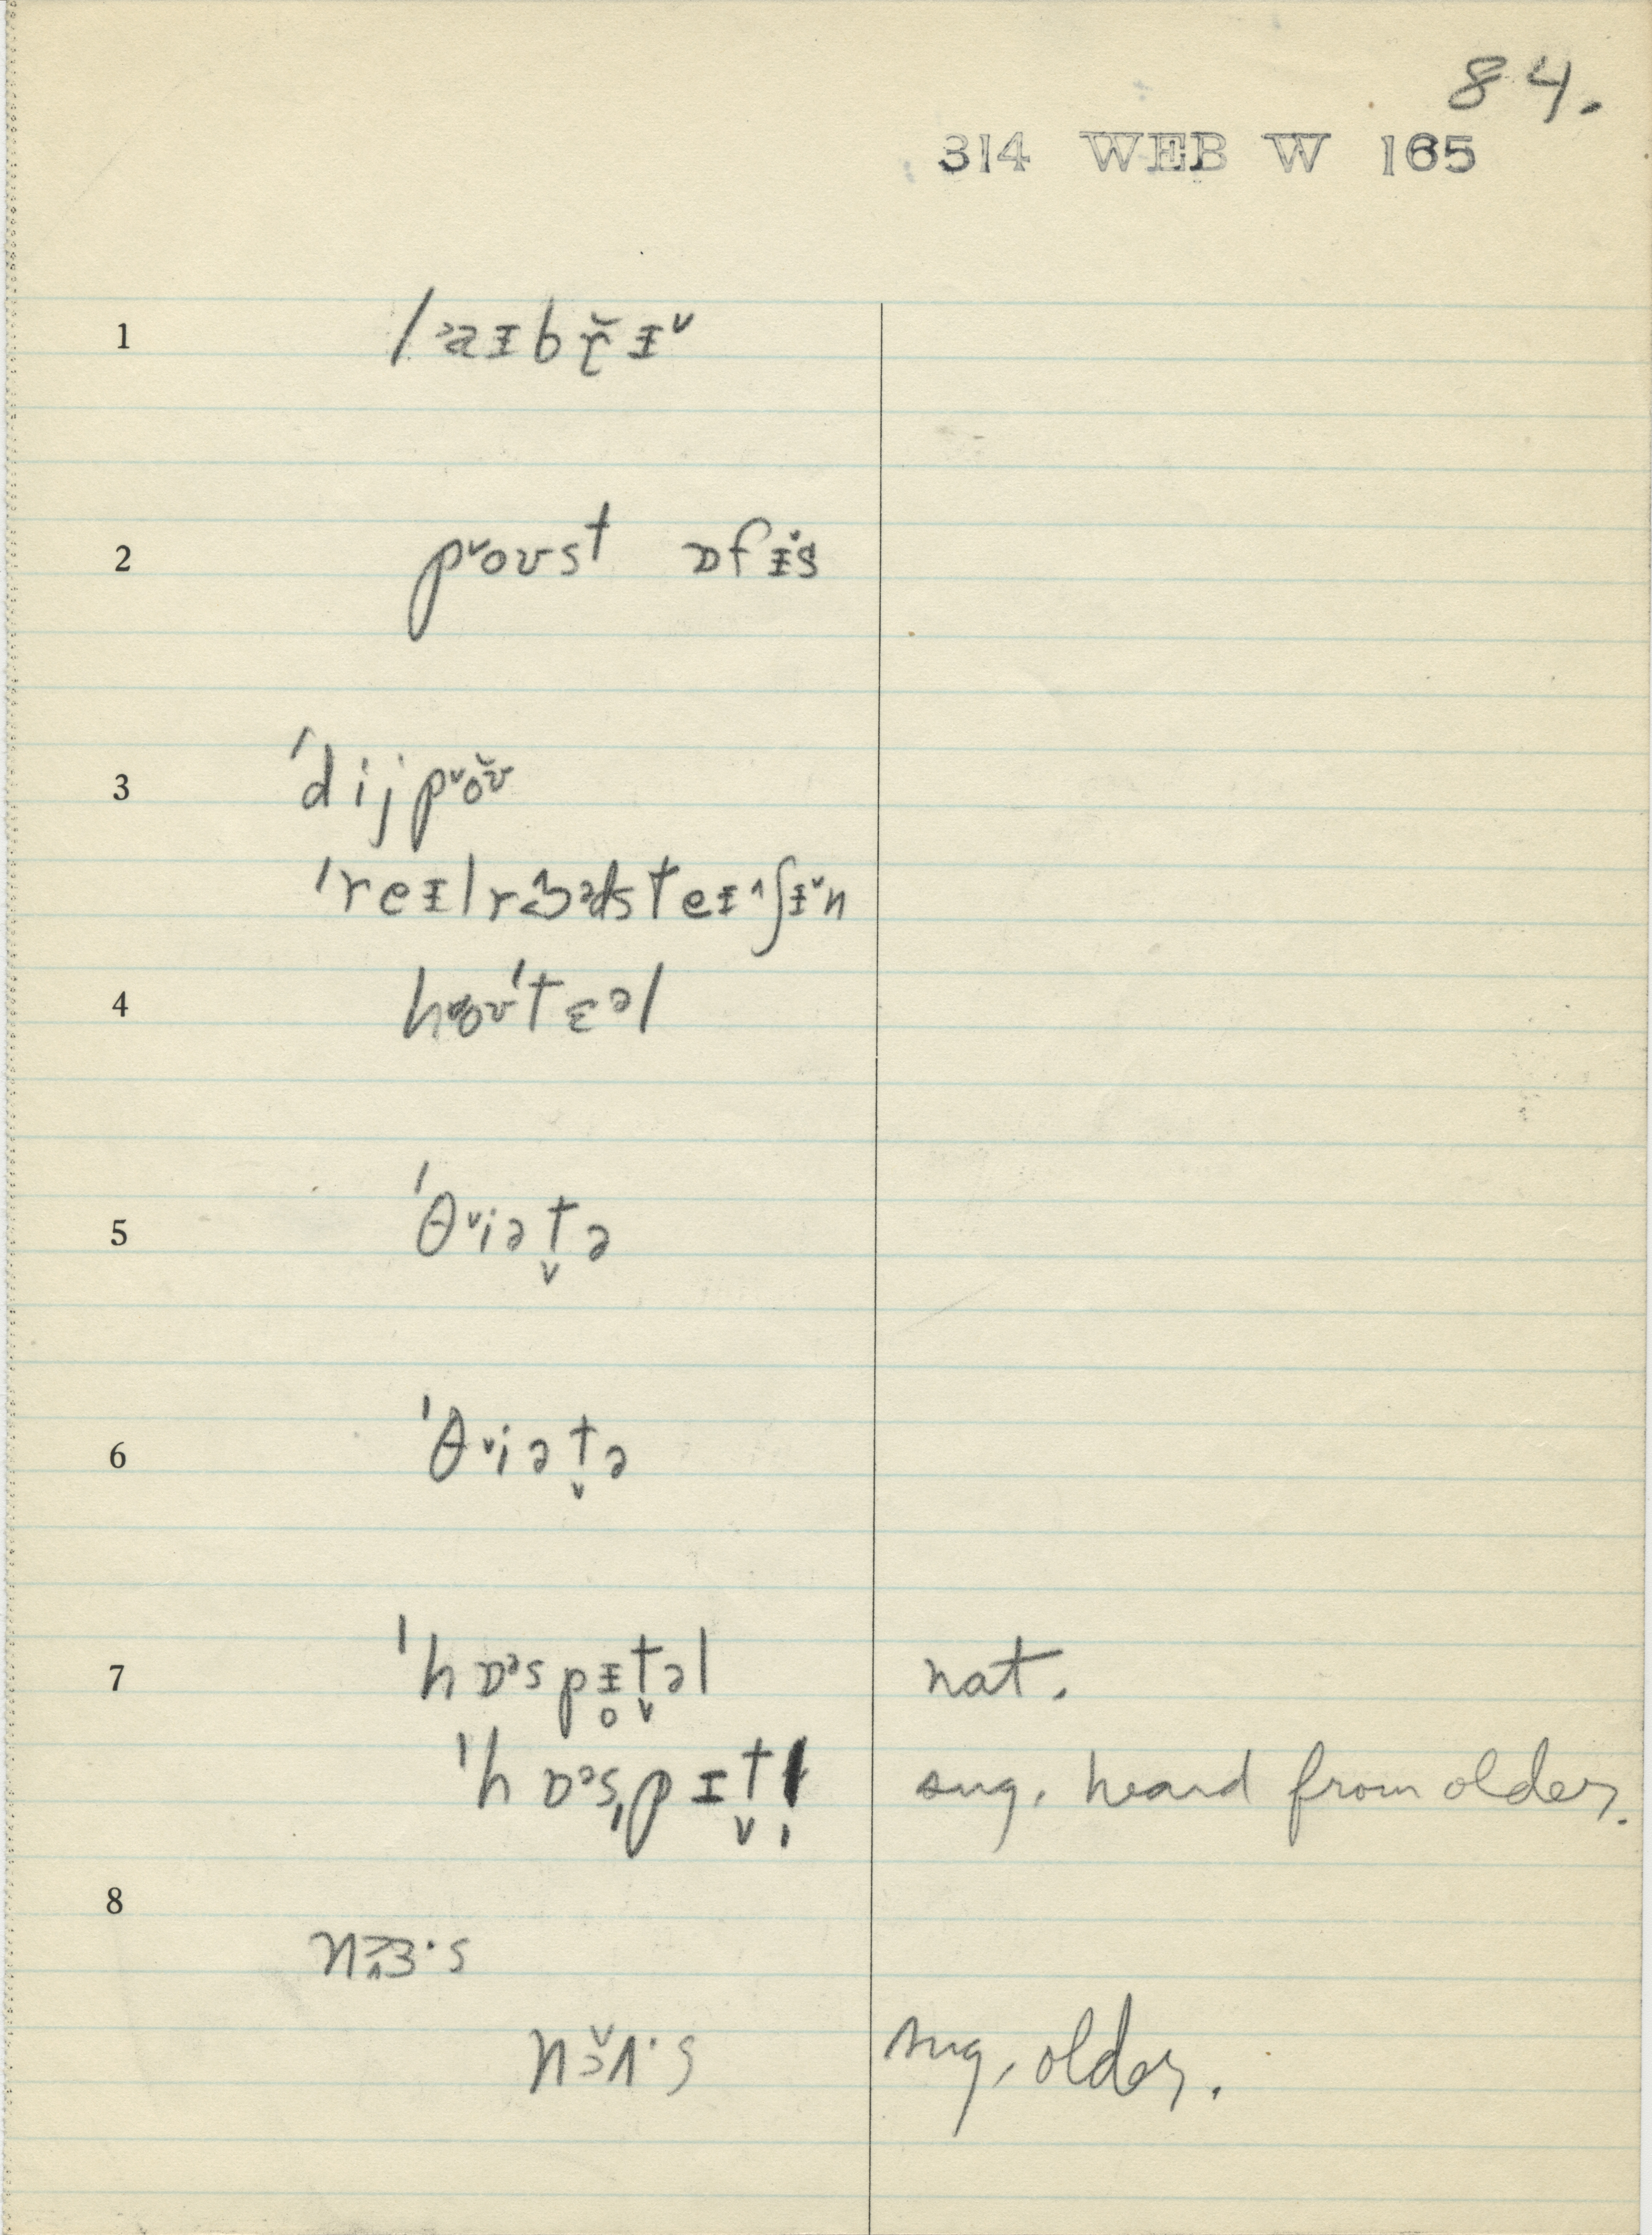 84.
314 WEB W 165
1 laɪbr̯̆ɪ˅
2 p˅oʊst ɒfɪ˅s
3 ˈdijp˅ŏʊ
ˈreɪlrɜ^ədsteɪ^ʃɪ˅n
4 hoʊˈtɛəl
5 ˈθ˅iət̬ə
6 ˈθ˅iət̬ə
7 ˈhɒᵊspɪ̥t̬əl nat.
ˈhɒᵊsˌpɪt̬l̩ sug. heard from older.
8
nɜ·s
sug. older.